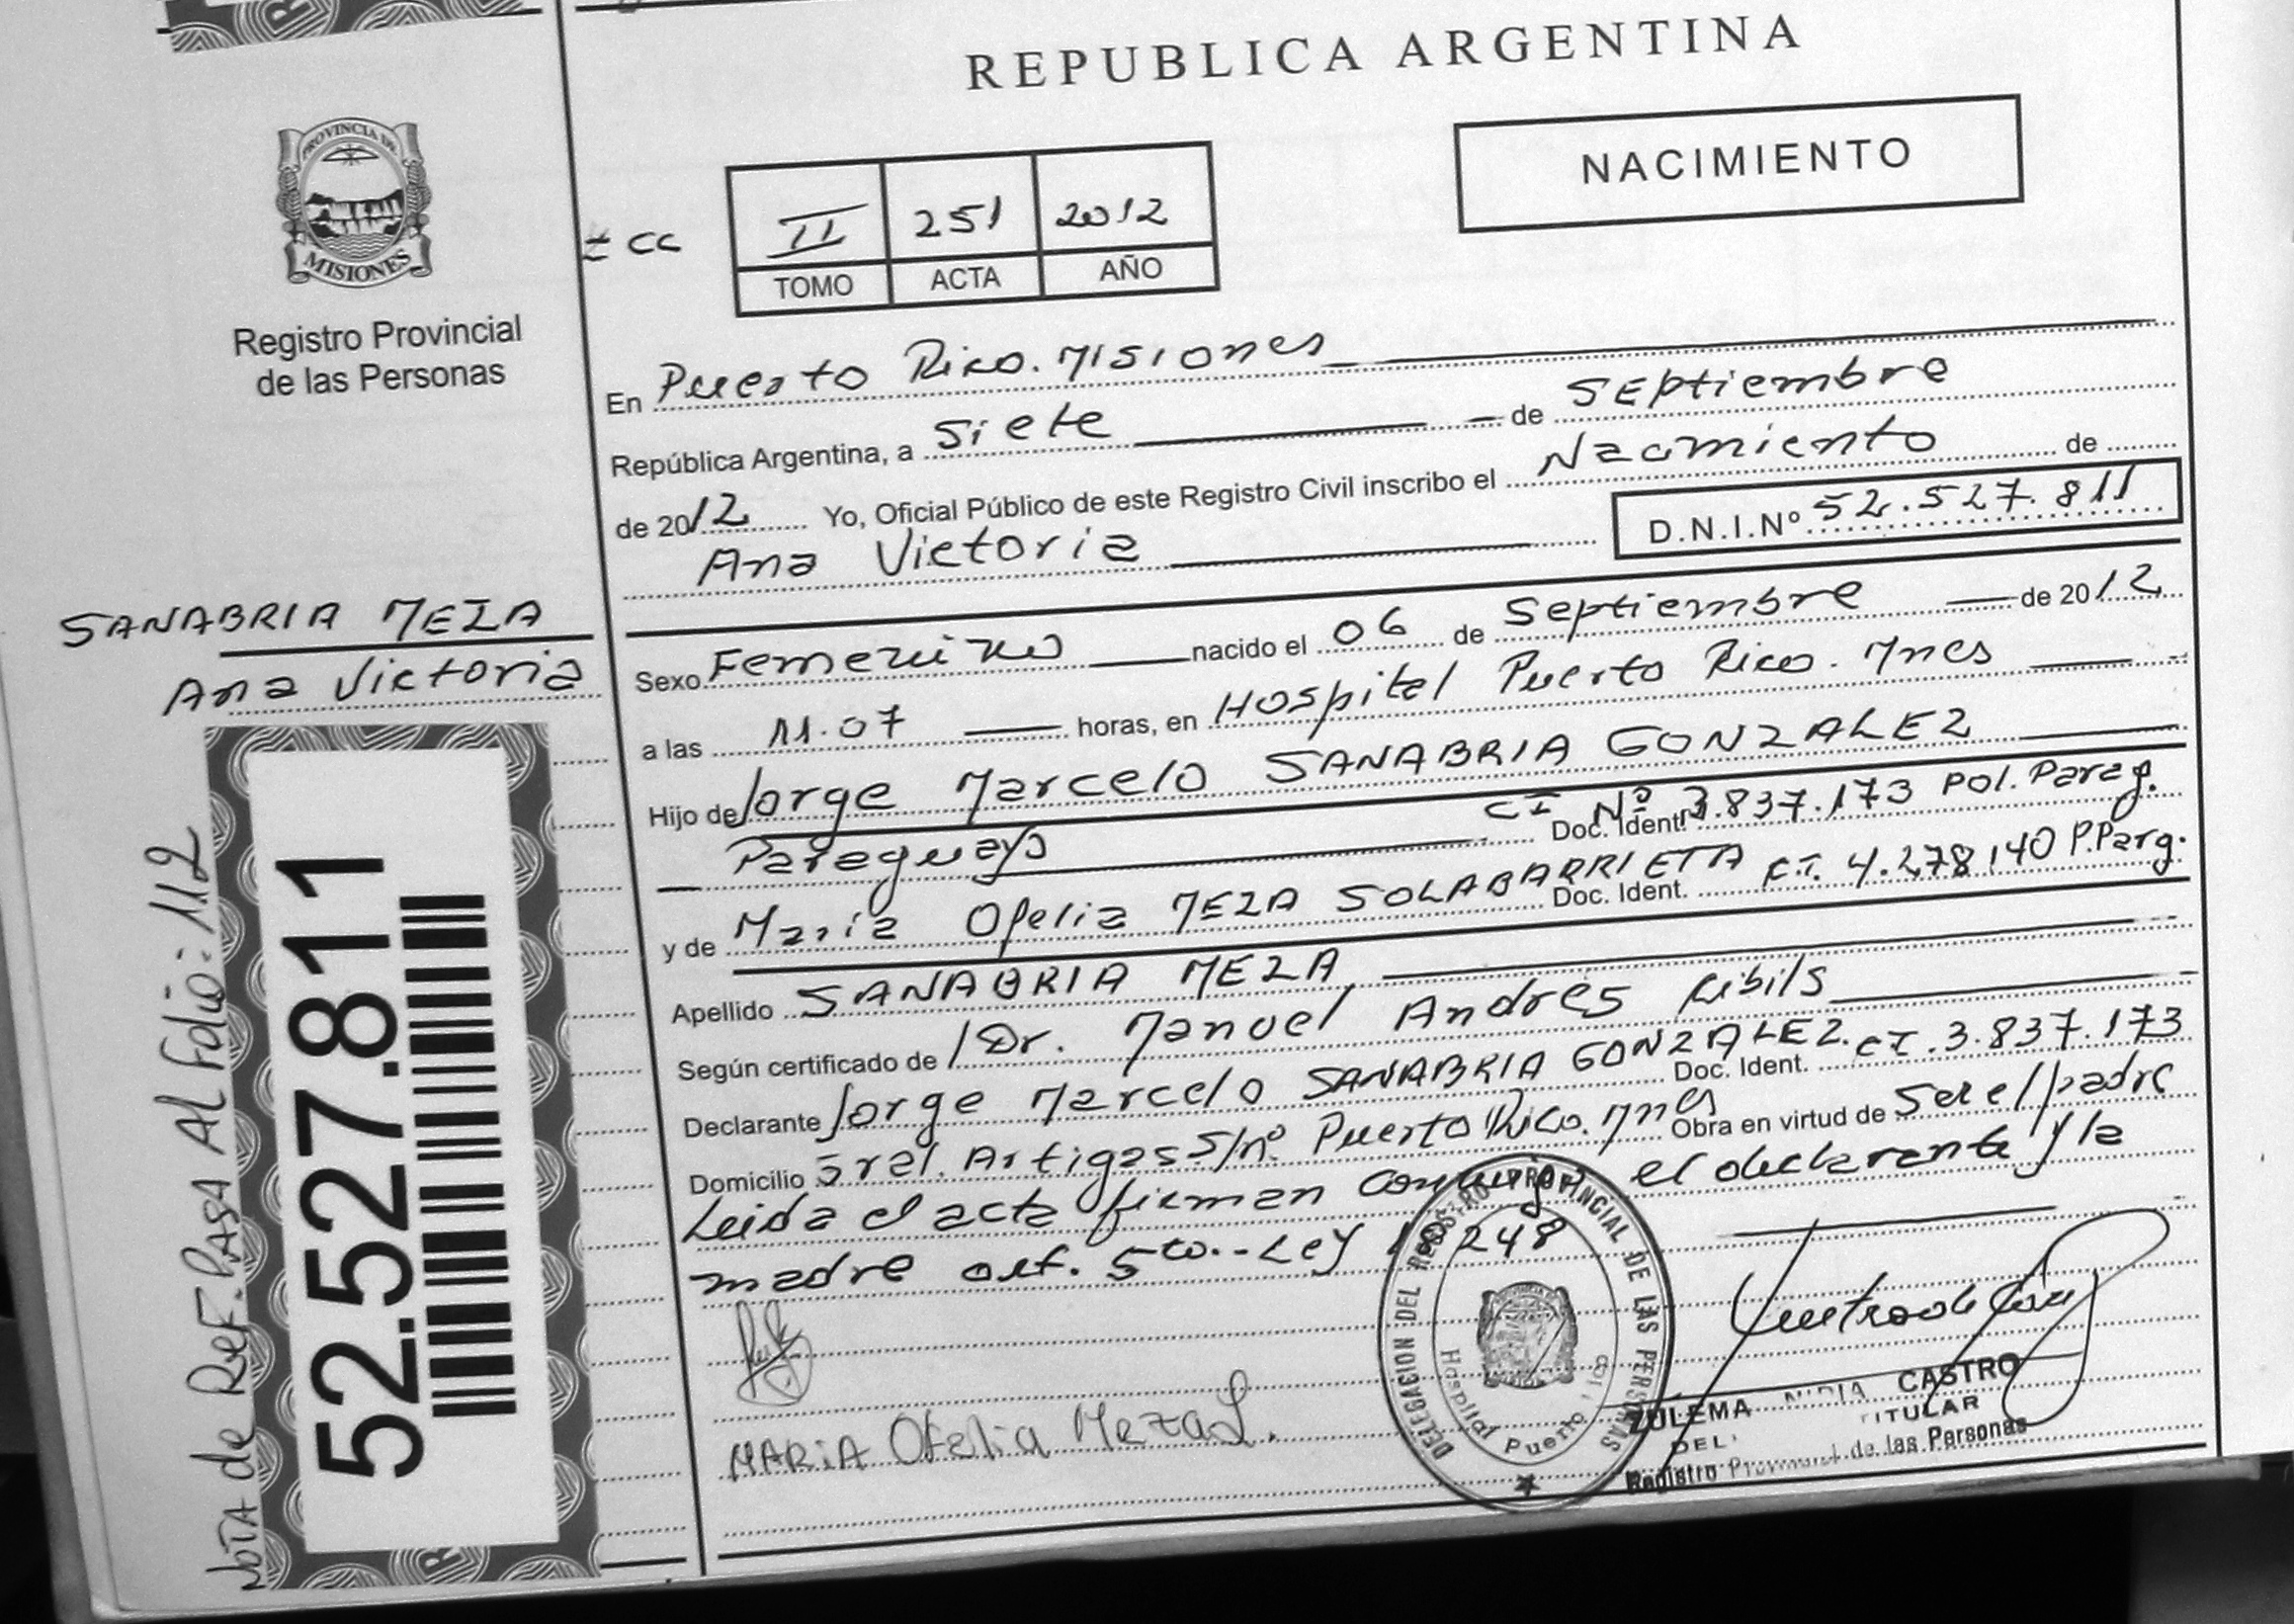 REPUBLICA ARGENTINA
NACIMIENTO
PROVINCIA DE
MISIONES
Registro Provincial
de las Personas
± cc
II 251 2012
TOMO ACTA AÑO
En Puerto Rico. Misiones
República Argentina, a siete de Septiembre
de 2012 Yo, Oficial Público de este Registro Civil inscribo el Nacimiento de
Ana Victoria D.N.I.Nº 52.527.811
SANABRIA MEZA
Ana Victoria
Sexo Femenino nacido el 06 de Septiembre de 2012
a las 11.07 horas, en Hospital Puerto Rico. Mnes
Hijo de Jorge Marcelo SANABRIA GONZALEZ
Paraguayo Doc. Ident. CI Nº 3.837.173 Pol. Parag.
y de Maria Ofelia MEZA SOLABARRIETA Doc. Ident. C.I. 4.278140 P.Parg.
Apellido SANABRIA MEZA
Según certificado de Dr. Manuel Andrés Ribils
Declarante Jorge Marcelo SANABRIA GONZALEZ. Doc. Ident. CI.3.837.173
Domicilio Gral. Artigas S/nº Puerto Rico. Mnes Obra en virtud de ser el padre
Leida el acta firman conmigo el declarante y la
madre art. 5to.-Ley 18248
MARIA Ofelia Meza S.
DELEGACION DEL REGISTRO PROVINCIAL DE LAS PERSONAS
Hospital Puerto Rico
ZULEMA NIDIA CASTRO
TITULAR
DEL.
Registro Provincial de las Personas
52.527.811
NOTA de REF. PASA Al Folio: 112